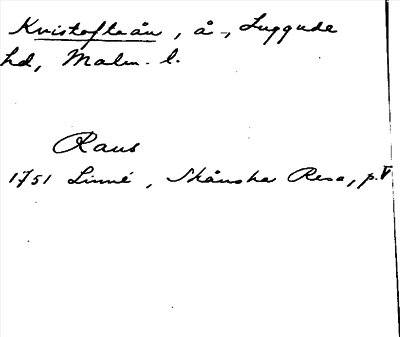 Kristofteån, å -, Luggude
hd, Malm. l.
Raus
1751 Linné, Skånska Resa, p. V